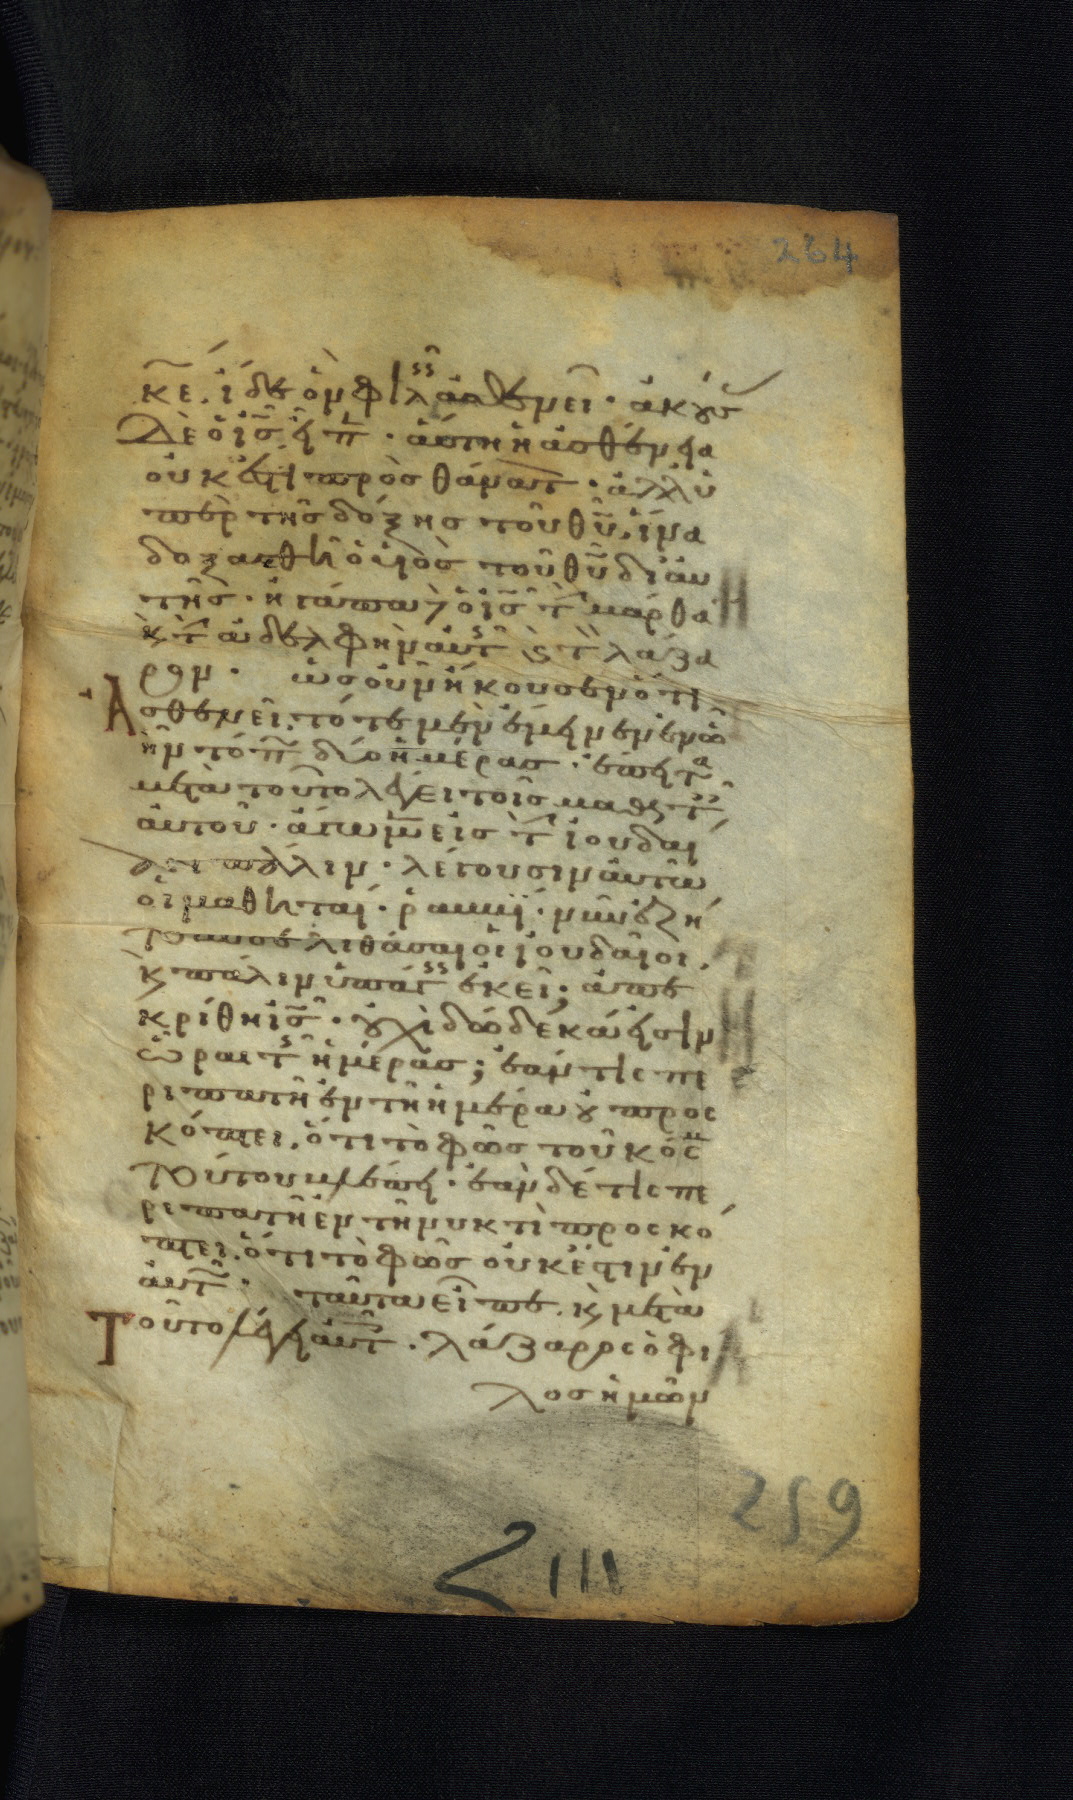 264
κε̅. ἴδε ὃν φιλεῖς ἀσθενεῖ· ἀκού̅σ
δὲ ὁ ι̅ς̅ εἶπ· αὕτη ἡ ἀσθένεια
οὐκ ἔστι πρὸς θάνατ· ἀλλ ὑ
πὲρ τῆς δόξης τοῦ θ̅υ̅. ἵνα
δοξασθῆ ὁ υἱὸς τοῦ θ̅υ̅ δι αὐ
τῆς· ἠγάπα δ ὁ ι̅ς̅ τ̅ μάρθα
κ̀ τ̅ ἀδελφὴν αὐτ κ̀ τ̀ λάζα
ρον· ὡς οὖν ἤκουσεν ὅτι
Ἀσθενεῖ. τότε μὲν ἔμεινεν ἐν ὧ
ἦν τόπ δύο ἡμέρας· ἔπειτα
μετὰ τοῦτο λέγει τοῖς μαθητ
αὐτοῦ· ἄγωμεν εἰς τ̅ ἰουδαί
αν πάλιν· λέγουσιν αὐτῶ
οἱ μαθηταί· ῥαββί· νῦν ἐζή
τουν σε λιθάσαι οἱ ἰουδαῖοι.
κ̀ πάλιν ὑπάγεις ἐκεῖ; ἀπε
κρίθη ι̅ς̅· οὐχὶ δώδεκά εἰσιν
ὧραι τ̅ ἡμέρας; ἐάν τις πε
ριπατῆ ἐν τῆ ἡμέρα οὐ προσ
κόπτει. ὅτι τὸ φῶς τοῦ κόσμ
τούτου βλέπει· ἐὰν δέ τις πε
ριπατῆ ἐν τῆ νυκτὶ προσκό
πτει. ὅτι τὸ φῶς οὐκ ἔστιν ἐν
αὐτ· ταῦτα εἶπε. κ̀ μετὰ
Τοῦτο λέγει αὐτ· λάζαρος ὁ φί
λος ἡμῶν
259